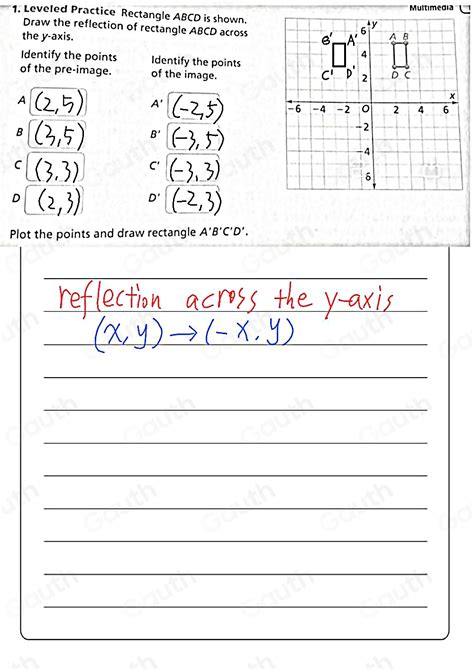 Multimedia
1. Leveled Practice Rectangle ABCD is shown.
Draw the reflection of rectangle ABCD across
the y-axis.
Identify the points
of the pre-image.
Identify the points
of the image.
A (2,5)
A' (-2,5)
B (3,5)
B' (-3,5)
C (3,3)
C' (-3,3)
D (2,3)
D' (-2,3)
y
6
B' A' A B
4
C' D' 2 D C
x
-6 -4 -2 O 2 4 6
-2
-4
6
Plot the points and draw rectangle A'B'C'D'.
reflection across the y-axis
(x, y) → (-x, y)
Gauth